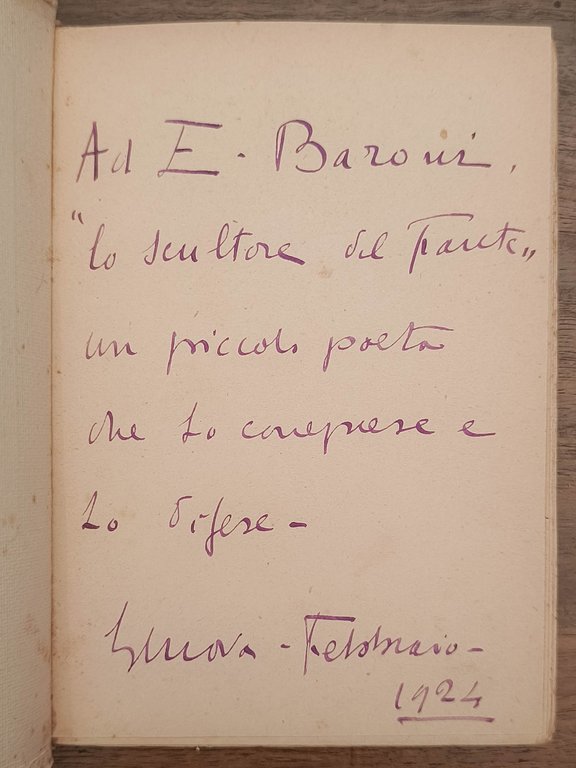 Ad E. Baroni,
"lo scultore del Fante„
un piccolo poeta
che Lo comprese e
Lo difese -
Genova - Febbraio -
1924